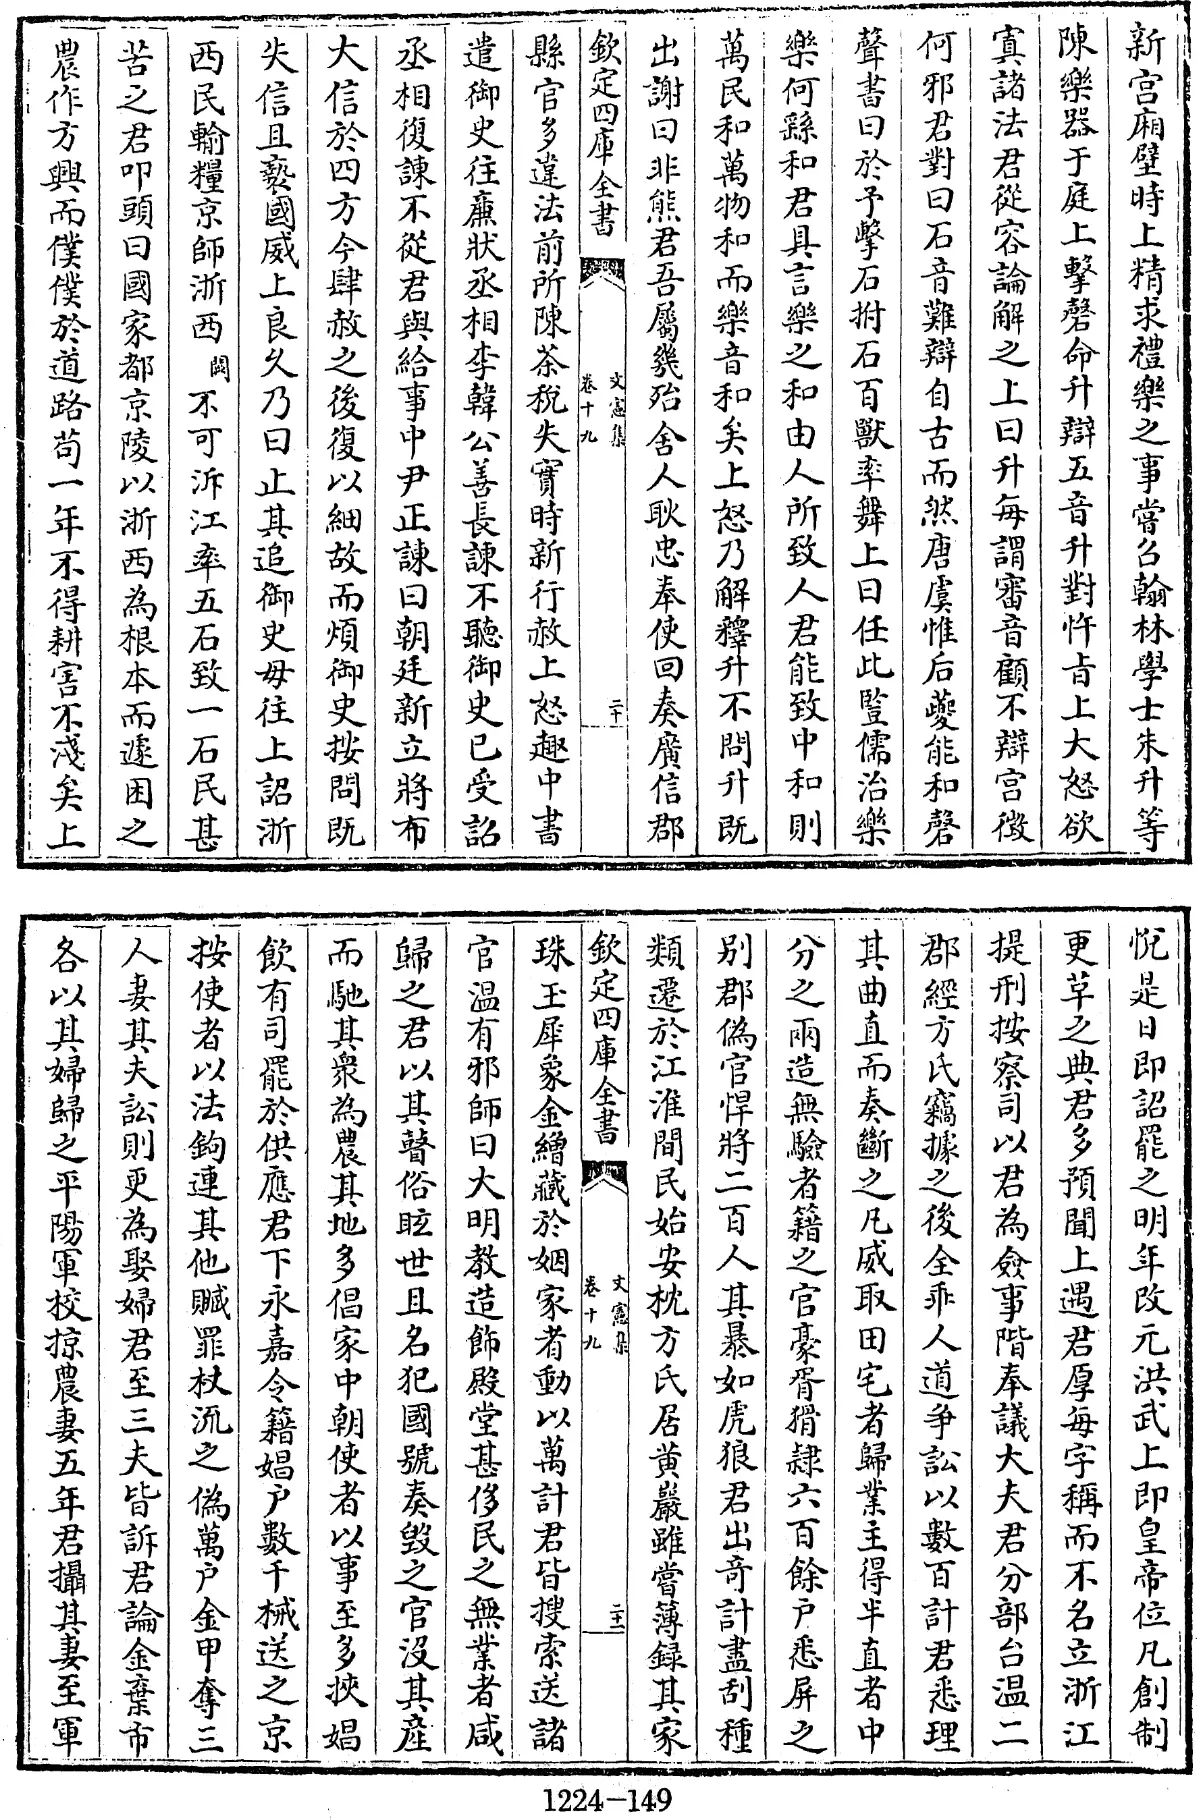 新宫廂壁時上精求禮樂之事嘗召翰林學士朱升等
陳樂器于庭上擊磬命升辯五音升對忤旨上大怒欲
寘諸法君從容論解之上曰升每謂審音顧不辯宫徴
何邪君對曰石音難辯自古而然唐虞惟后夔能和磬
聲書曰於予擊石拊石百獸率舞上曰任此豎儒治樂
樂何繇和君具言樂之和由人所致人君能致中和則
萬民和萬物和而樂音和矣上怒乃解釋升不問升既
出謝曰非熊君吾屬幾殆舍人耿忠奉使回奏廣信郡
欽定四庫全書
文憲集
卷十九
二十
縣官多違法前所陳茶税失實時新行赦上怒趣中書
遣御史往廉狀丞相李韓公善長諫不聽御史已受詔
丞相復諫不從君與給事中尹正諫曰朝廷新立將布
大信於四方今肆赦之後復以細故而煩御史按問既
失信且褻國威上良久乃曰止其追御史毋往上詔浙
西民輸糧京師浙西闕不可泝江率五石致一石民甚
苦之君叩頭曰國家都京陵以浙西為根本而遽困之
農作方興而僕僕於道路苟一年不得耕害不淺矣上
悅是日即詔罷之明年改元洪武上即皇帝位凡創制
更革之典君多預聞上遇君厚每字稱而不名立浙江
提刑按察司以君為僉事階奉議大夫君分部台温二
郡經方氏竊據之後全乖人道爭訟以數百計君悉理
其曲直而奏斷之凡威取田宅者歸業主得半直者中
分之兩造無驗者籍之官豪胥猾隸六百餘户悉屏之
别郡偽官悍將二百人其暴如虎狼君出奇計盡刮種
類遷於江淮間民始安枕方氏居黄巖雖嘗薄録其家
欽定四庫全書
文憲集
卷十九
二十一
珠玉犀象金繒藏於姻家者動以萬計君皆搜索送諸
官温有邪師曰大明教造飾殿堂甚侈民之無業者咸
歸之君以其瞽俗眩世且名犯國號奏毁之官没其産
而馳其衆為農其地多倡家中朝使者以事至多挾娼
飲有司罷於供應君下永嘉令籍娼户數千械送之京
按使者以法鉤連其他贓罪杖流之偽萬户金甲奪三
人妻其夫訟則更為娶婦君至三夫皆訴君論金棄市
各以其婦歸之平陽軍校掠農妻五年君攝其妻至軍
1224-149